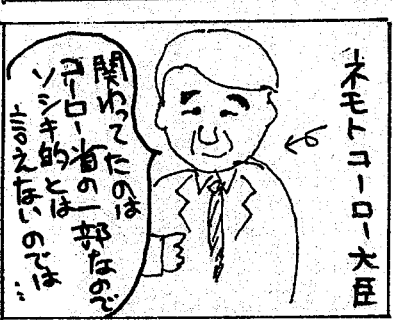 ネモトコーロー大臣
関わってたのは
コーロー省の一部なので
ソシキ的とは
言えないのでは…